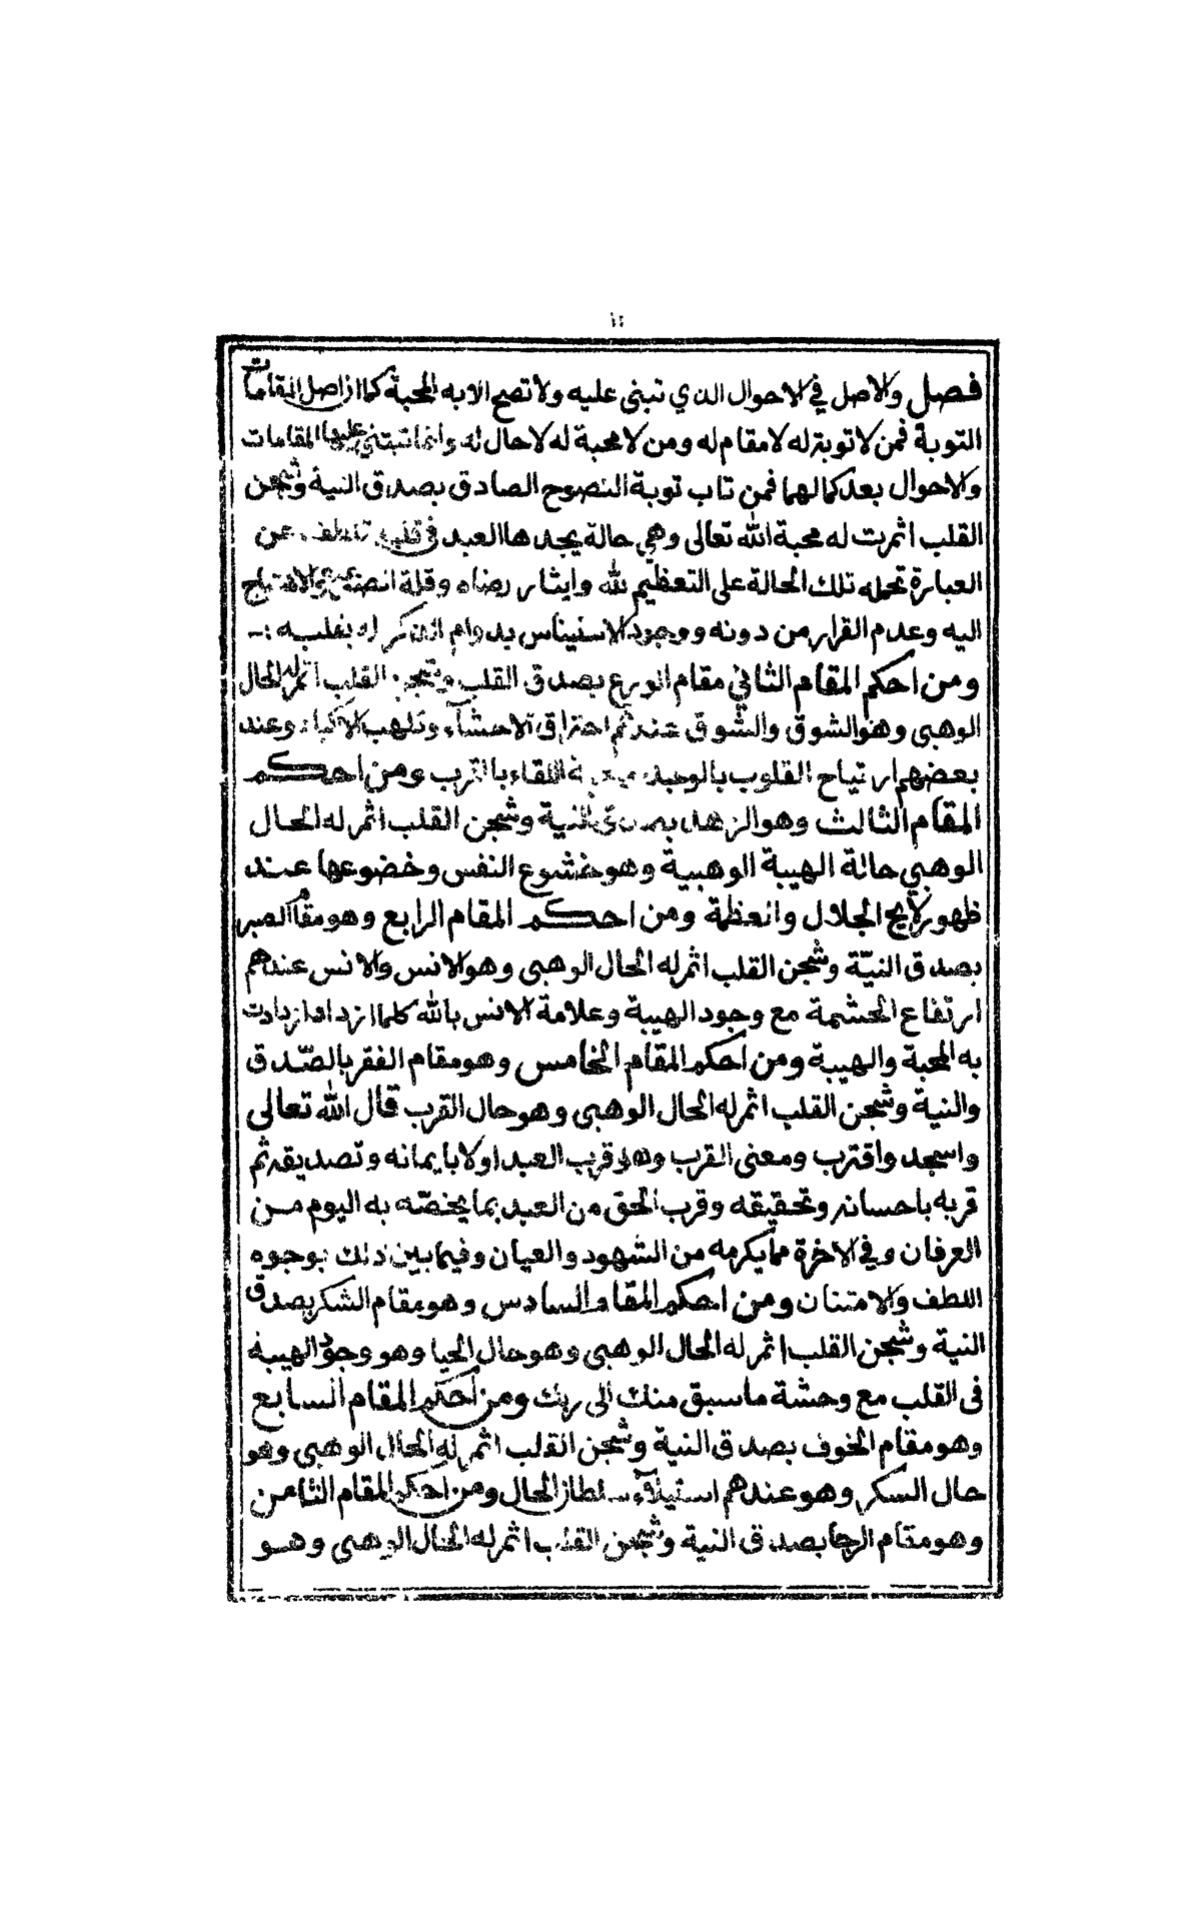 فصل والاصل في الاحوال الذي تبنى عليه ولا تصح الا به المحبة كما ان اصل المقامات
التوبة فمن لا توبة له لا مقام له ومن لا محبة له لا حال له وانما تبتني عليها المقامات
والاحوال بعد كمالهما فمن تاب توبة النصوح الصادق بصدق النية وشجن
القلب اثمرت له محبة الله تعالى وهي حالة يجدها العبد في قلبه تلطف عن
العبارة تحمله تلك الحالة على التعظيم لله وايثار رضاه وقلة الصبر والاهتياج
اليه وعدم القرار من دونه ووجود الاستيناس بدوام الذكر له بقلبه :-
ومن احكم المقام الثاني مقام الورع بصدق القلب وشجن القلب اثمر له الحال
الوهبي وهو الشوق والشوق عندهم احتراق الاحشآء وتلهب الاكباد وعند
بعضهم ارتياح القلوب بالوجد اللقاء بالقرب ومن احكم
المقام الثالث وهو الزهد بصدق النية وشجن القلب اثمر له الحال
الوهبي حالة الهيبة الوهبية وهو خشوع النفس وخضوعها عند
ظهور لايح الجلال والعظمة ومن احكم المقام الرابع وهو مقام الصبر
بصدق النيّة وشجن القلب اثمر له الحال الوهبي وهو الانس والانس عندهم
ارتفاع الحشمة مع وجود الهيبة وعلامة الانس بالله كلما ازداد ازدادت
به المحبة والهيبة ومن احكم المقام الخامس وهو مقام الفقر بالصّدق
والنية وشجن القلب اثمر له الحال الوهبي وهو حال القرب قال الله تعالى
واسجد واقترب ومعنى القرب وهو قرب العبد اولا بايمانه وتصديقه ثم
قربه باحسانه وتحقيقه وقرب الحق من العبد بما يخصّه به اليوم من
العرفان وفي الاخرة مما يكرمه من الشهود والعيان وفيما بين ذلك بوجوه
اللطف والامتنان ومن احكم المقام السادس وهو مقام الشكر بصدق
النية وشجن القلب اثمر له الحال الوهبي وهو حال الحيا وهو وجود الهيبة
فى القلب مع وحشة ما سبق منك الى ربك ومن احكم المقام السابع
وهو مقام الخوف بصدق النية وشجن القلب اثمر له الحال الوهبي وهو
حال السكر وهو عندهم استيلآء سلطان الحال ومن احكم المقام الثامن
وهو مقام الرجا بصدق النية وشجن القلب اثمر له الحال الوهبي وهو